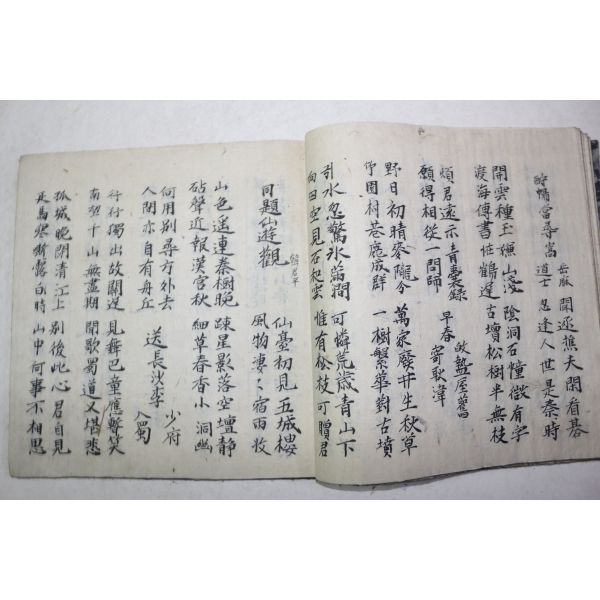 尋嵩岳麻道士
聞逐樵夫閑看碁
忽逢人世是秦時
開雲種玉嫌山淺
渡海傳書怪鶴遲
陰洞石幢微有字
古壇松樹半無枝
煩君遠示青囊錄
願得相從一問師
早春
故盩厔舊
寄耿湋
野日初晴麥隴分
竹園村巷鹿成群
萬家廢井生秋草
一樹繁華對古墳
引水忽驚氷滿澗
向田空見石起雲
可憐荒歲青山下
惟有松枝可贈君
同題仙遊觀
韓君平
仙臺初見五城樓
風物凄〻宿雨收
山色遥連秦樹晚
砧聲近報漢宮秋
疎星影落空壇静
細草春香小洞幽
何用別尋方外去
人間亦自有丹丘
送長沙李少府入蜀
行行獨出故關遲
南望千山無盡期
見舞巴童應暫笑
聞歌蜀道又堪悲
孤城晚閉清江上
匹馬寒嘶露白時
別後此心君自見
山中何事不相思